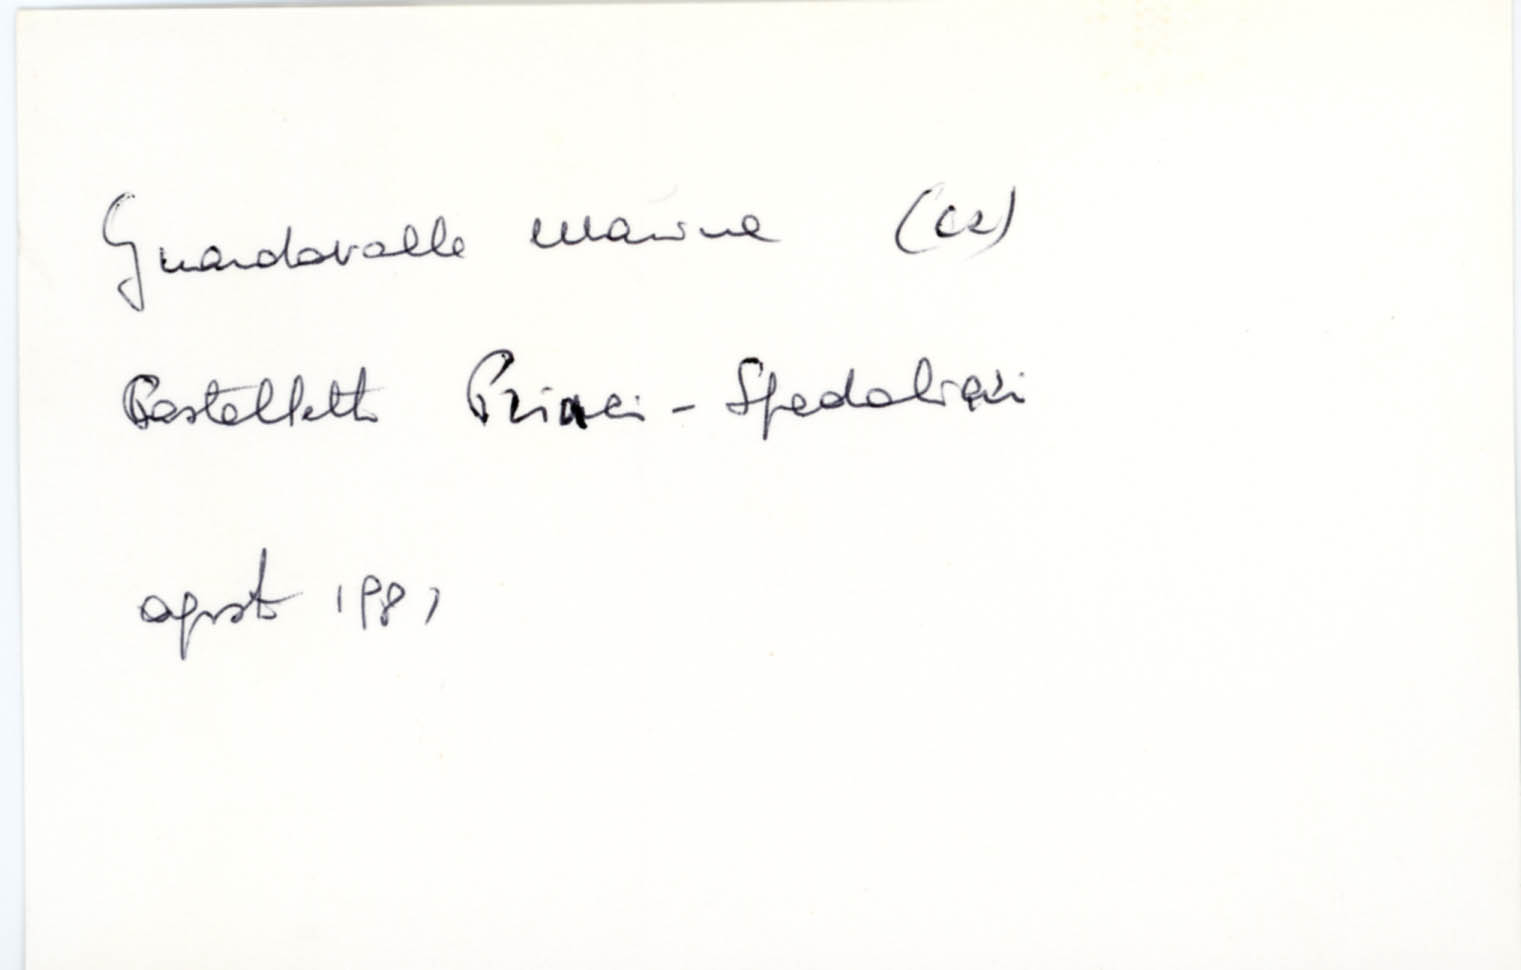 Guardavalle Marina (CZ)
Castelletto - Spedalieri
agosto 1981